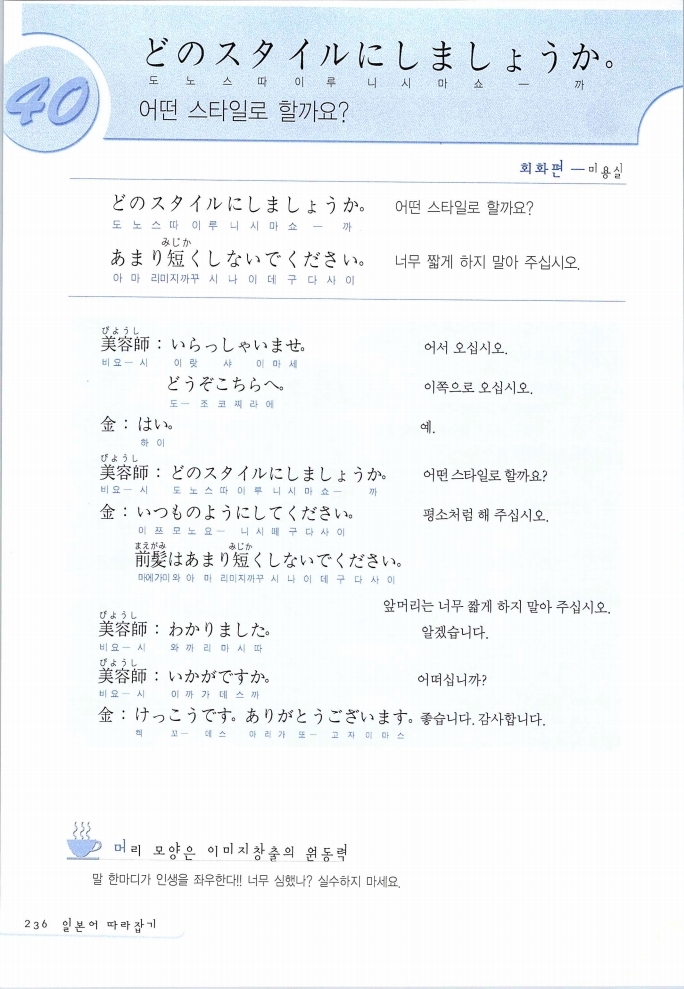 40
どのスタイルにしましょうか。
도 노 스 따 이 루 니 시 마 쇼 ー 까
어떤 스타일로 할까요?
회화편 ― 미용실
どのスタイルにしましょうか。 어떤 스타일로 할까요?
도 노 스 따 이 루 니 시 마 쇼 ー 까
みじか
あまり短くしないでください。 너무 짧게 하지 말아 주십시오.
아 마 리미지까꾸 시 나 이 데 구 다 사 이
びようし
美容師 : いらっしゃいませ。 어서 오십시오.
비요ー 시 이 랏 샤 이 마 세
どうぞこちらへ。 이쪽으로 오십시오.
도ー 조 코 찌 라 에
金 : はい。 예.
하 이
びようし
美容師 : どのスタイルにしましょうか。 어떤 스타일로 할까요?
비요ー 시 도 노 스 따 이 루 니 시 마 쇼ー 까
金 : いつものようにしてください。 평소처럼 해 주십시오.
이 쯔 모 노 요ー 니 시 떼 구 다 사 이
まえがみ みじか
前髪はあまり短くしないでください。
마에가미와 아 마 리미지까꾸 시 나 이 데 구 다 사 이
앞머리는 너무 짧게 하지 말아 주십시오.
びようし
美容師 : わかりました。 알겠습니다.
비요ー 시 와 까 리 마 시 따
びようし
美容師 : いかがですか。 어떠십니까?
비요ー 시 이 까 가 데 스 까
金 : けっこうです。ありがとうございます。 좋습니다. 감사합니다.
켁 꼬ー 데 스 아 리 가 또ー 고 자 이 마 스
머리 모양은 이미지창출의 원동력
말 한마디가 인생을 좌우한다!! 너무 심했나? 실수하지 마세요.
236 일본어 따라잡기